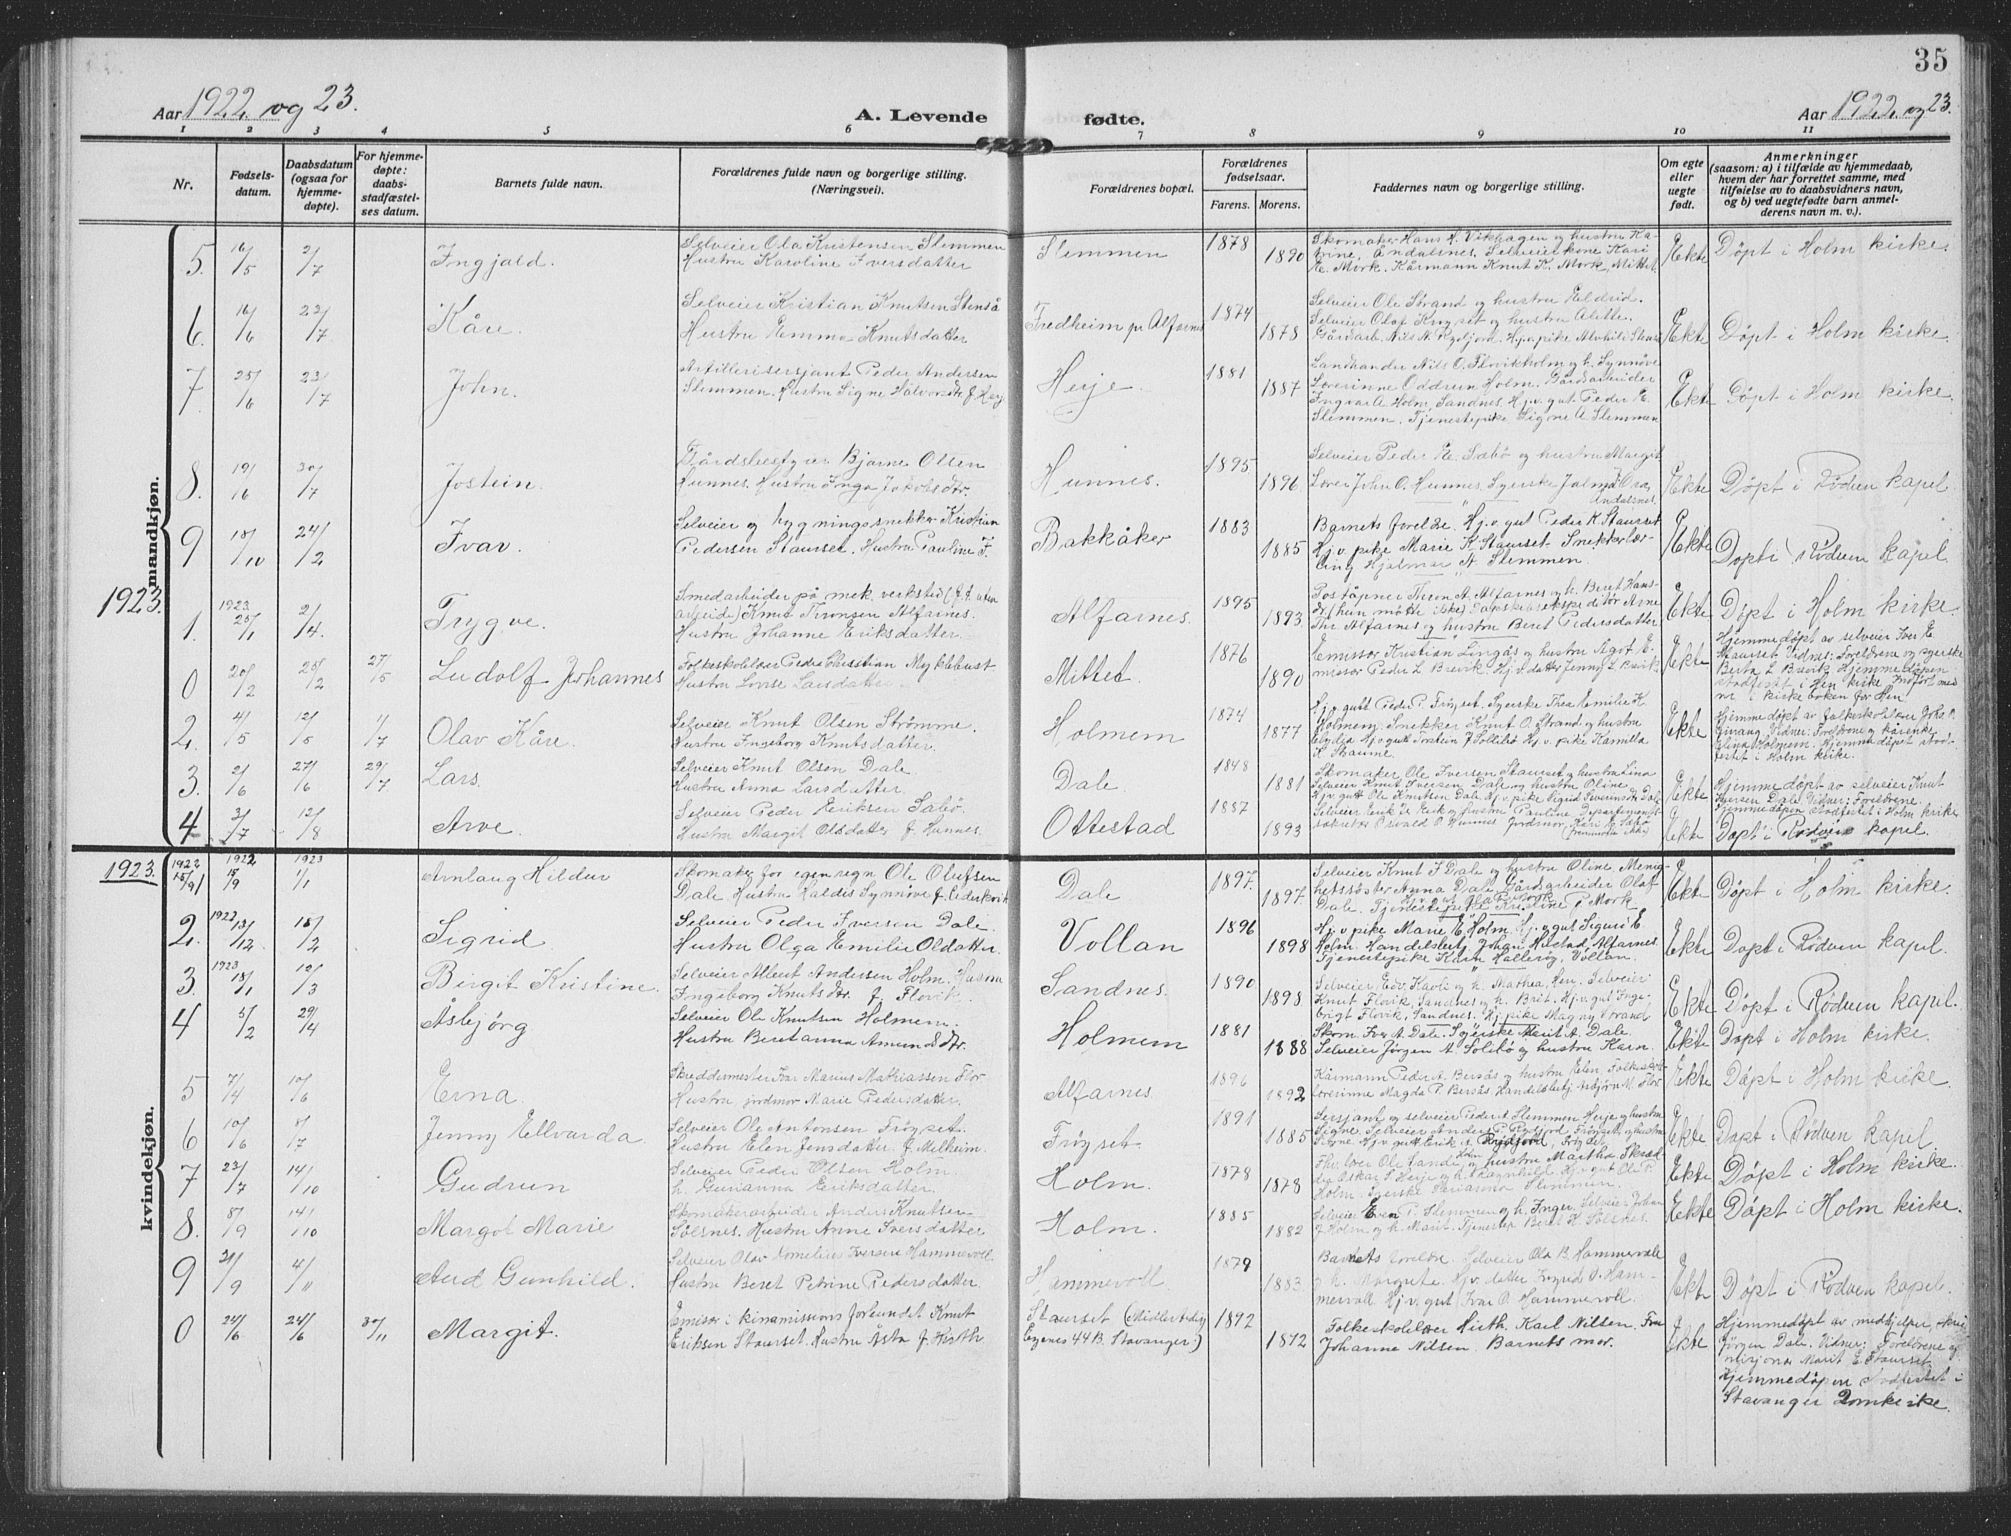 35
Aar 1922 og 23.
A. Levende fødte.
Aar 1922 og 23.
1 2 3 4 5 6 7 8 9 10 11
Nr.
Fødsels-
datum.
Daabsdatum
(ogsaa for
hjemme-
døpte).
For hjemme-
døpte:
daabs-
stadfæstel-
ses datum.
Barnets fulde navn.
Forældrenes fulde navn og borgerlige stilling.
(Næringsvei).
Forældrenes bopæl.
Forældrenes
fødselsaar.
Farens. Morens.
Faddernes navn og borgerlige stilling.
Om egte
eller
uegte
født.
Anmerkninger
(saasom: a) i tilfælde av hjemmedaab,
hvem der har forrettet samme, med
tilføielse av to daabsvidners navn,
og b) ved uegtefødte barn anmel-
derens navn m. v.).
mandkjøn.
5. 16/5 2/7 Ingjald.
Selveier Ola Kristensen Slemmen
Hustru Karoline Iversdatter
Slemmen 1878 1890
Skomaker Hans H. Vikhagen og hustru Ka-
trine, Åndalsnes. Selveierkone Kari
E. Mork. Kårmann Knut K. Mork, Mittet.
Ekte Døpt i Holm kirke.
6. 16/6 22/7 Kåre.
Selveier Kristian Knutsen Stenså
Hustru Emma Knutsdatter
Fredheim pr Alfarnes 1874 1878
Selveier Ole Strand og hustru Eldrid.
Selveier Olaf Frøyset og hustru Alette.
Gårdarb. Nils N. Rydjord. Hj.v.pike Alvhild Stenså
Ekte Døpt i Holm kirke.
7. 25/6 23/7 John.
Artillerisersjant Peder Andersen
Slemmen. Hustru Signe Halvorsdtr f. Herje
Herje. 1881 1887
Landhandler Nils O. Flovikholm og h. Synnøve
Lærerinne Oddrun Holm. Gårdsarbeider
Ingvar A. Holm, Sandnes. Hj.v.gut Peder E.
Slemmen. Tjenestepike Signe A Slemmen
Ekte Døpt i Holm kirke.
8. 19/6 30/7 Jostein.
Gårdsbestyrer Bjarne Olsen
Hunnes. Hustru Inga Jakobsdtr.
Hunnes. 1895 1896
Selveier Peder E. Sæbø og hustru Margit
Lærer John O. Hunnes. Syerske Jalma Ora,
Åndalsnes.
Ekte Døpt i Rødven kapel
9 18/10 24/2 Ivar.
Selveier og bygningssnekker Kristian
Pedersen Staurset. Hustru Pauline I.
Bakkåker 1883 1885
Barnets foreldre. Hj.v.gut Peder K. Staurset
Hj v. pike Marie K. Staurset Snekkerlær-
ling Hjalmar A. Slemmen
Ekte Døpt i Rødven kapel
1923.
1. 1923 25/1 2/4. Trygve.
Smedarbeider på mek. verksted (f.t. uten
arbeide) Knut Tronsen Alfarnes.
Hustru Johanne Eriksdatter.
Alfarnes. 1895 1893
Poståpner Tron A. Alfarnes og h. Beret Hans-
dtr. (hun møtte ikke) Dampskibsekspeditør Arne
Thr. Alfarnes og hustru Beret Pedersdatter
Ekte Døpt i Holm kirke.
0 20/2 25/2 27/5 Ludolf Johannes
Folkeskolelærer Peder Christian Myklebust
Hustru Lovise Larsdatter
Mittet 1876 1890
Emissær Kristian Lingås og hustru Agot E-
missær Peder L Brevik. Hj.v.datter Jenny L Brevik
Ekte
Hjemmedøpt av selveier Iver E.
Staurset. Vidner: Foreldrene og syerske
Berta L Brevik. Hjemmedåpen
stadfestet i Hen kirke. Innført med
nr i kirkeboken for Hen
2. 4/5 12/5 1/7 Olav Kåre.
Selveier Knut Olsen Strømme.
Hustru Ingeborg Knutsdatter.
Holmem 1874 1877
Hj.v.gut Peder P. Frøyset. Syerske Thea Emilie K
Holmem. Snekker Knut O. Strand og hustru
Elydia Hj.v.gutt Torstein J Sollibø Hj.v.pike Kamilla
Ekte
Hjemmedøpt av folkeskolelærer Johs P.
Vidner: Foreldrene og kårenke
Elina Holmem. Hjemmedåpet stad-
festet i Holm kirke.
3. 2/6 27/6 29/7 Lars.
Selveier Knut Olsen Dale
Hustru Anna Larsdatter.
Dale 1848 1881
Skomaker Ole Iversen Staurset og hustru Lina
Selveier Knut Iversen Dale og hustru Oline
Hj.v.gutt Ole Knutsen Dale Hj.v.pike Sigrid Severinsdtr Dale
Ekte
Hjemmedøpt av selveier Knut
Iversen Dale. Vidner: Foreldrene.
Hjemmedåpen stadfestet i Holm kirke
4. 3/7 12/8 Arve.
Selveier Peder Eriksen Sæbø
Hustru Margit Olsdatter f. Hunnes.
Ottestad 1887 1893
Selveier Erik P. Eik og hustru Pauline. Departements-
sekretær Osvald O. Hunnes Jordmor Kari E Sæbø
(fremmøtte ikke)
Ekte Døpt i Rødven kapel.
1923.
kvindekjøn.
1922 15/9 1 1922 15/9 1923 1/1 Arnlaug Hildur
Skomaker for egen regn. Ole Olufsen
Dale Hustru Haldis Synnøve f. Pederkvik
Dale 1897. 1897.
Selveier Knut I Dale og hustru Oline Menig-
hetssøster Anna Dale. Gårdsarbeider Olaf
Dale. Tjenestepike Kristine P. Mork
Ekte Døpt i Holm kirke.
2. 1922 13/12 18/2 Sigrid
Selveier Peder Iversen Dale.
Hustru Olga Emilie Olsdatter.
Vollan 1896 1898
Hj.v.pike Marie E. Holm. Hj.v.gut Sigurd E
Holm. Handelsbetj. Johan Hustad, Alfarnes.
Tjenestepike Karn Hallerøy, Vollan.
Ekte Døpt i Rødven kapel.
3. 1923 18/1 12/3 Birgit Kristine.
Selveier Albert Andersen Holm. Hustru
Ingeborg Knutsdtr. f. Flovik.
Sandnes. 1890 1898
Selveier Edv. Kavli og h. Martha, Hen. Selveier
Knut Flovik, Sandnes og h. Brit. Hj.v.gut Inge-
brigt Flovik, Sandnes. Hj.pike Magny Strand
Ekte Døpt i Rødven kapel.
4 5/2 29/4 Åsbjørg
Selveier Ole Knutsen Holmem.
Hustru Beretanna Amundsdtr.
Holmem 1881 1888
Skom. Iver A. Dale. Syerske Marit A. Dale.
Selveier Jørgen A. Solibø og hustru Karn.
Ekte Døpt i Holm kirke.
5 7/4 10/6 Erna.
Skreddermester Ivar Marius Mathiassen Flor
Hustru jordmor Marie Pedersdatter.
Alfarnes. 1896 1892
Kårmann Peder A. Bersås og hustru Elen, Folkeskole-
lærerinne Magda P. Bersås Handelsbetj. M. Flor
Ekte Døpt i Holm kirke
6 10/6 8/7 Jenny Ellvarda.
Selveier Ole Antonsen Frøyset.
Hustru Elen Jensdatter f. Melheim.
Frøyset 1891 1885
Sersjant og selveier Peder Slemmen Herje og hustru
Signe. Selveier Anders P. Rydjord, Frøyset, og hustru
Signe Hj.v.gutt Erik A. Rydjord, Frøyset
Ekte Døpt i Rødven kapel
7 23/7 14/10 Gudrun
Selveier Peder Olsen Holm.
h. Gurianna Eriksdatter.
Holm. 1878 1878
Fhv. lærer Ole Sande og hustru Martha Skræd-
der Oskar S. Herje og h. Magnhild. Hj.v.gut Ola P.
Holm. Syerske Slemmen.
Ekte Døpt i Holm kirke.
8. 8/9 14/10 Margot Marie
Skomakerarbeider Anders Knutsen
Sølsnes. Hustru Anne Iversdatter
Holm. 1885 1882
Selveier Even P. Slemmen og h. Inger. Selveier Johan
J. Holm og h. Marit. Tjenestep. Beret H. Sølsnes.
Ekte Døpt i Holm kirke.
9 21/9 4/11 Aud Gunhild.
Selveier Olav Kornelius Iversen Hammervoll
Hustru Beret Petrine Pedersdatter.
Hammervoll 1879 1883
Barnets foreldre. Selveier Ola B. Hammervoll
og h. Margrete. Hj.v.datter Ingrid O. Ham-
mervoll Hj.v.gut Ivar O. Hammervoll.
Ekte Døpt i Rødven kapel.
0 24/6 24/6 30/11 Margit.
Emisær i kinamissionsforbundet Knut
Eriksen Staurset. Hustru Åsta f. Hirth
Staurset (Midlertidig
Egenes 44 B. Stavanger) 1892 1892
Folkeskolelærer Hirth. Karl Nilsen. Fru
Johanne Nilsen. Barnets mor.
Ekte
Hjemmedøpt av medhjelper
Jørgen Dale. Vidner: Foreldrene og
Marit E. Staurset.
Hjemmedåpen stadfestet i
Stavanger Domkirke.